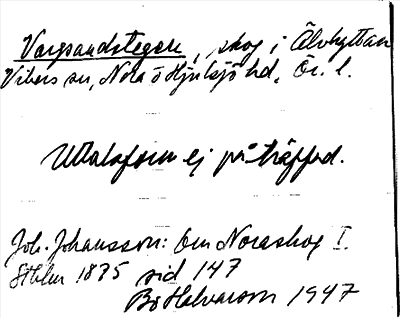 Vargsandstegen, skog i Älvhyttan
Vikers sn, Nora o Hjulsjö hd, Ör. l.
Uttalsform ej påträffad.
Joh. Johansson: Om Noraskog I.
Sthlm 1875 sid 147
Bo Halvarson 1947